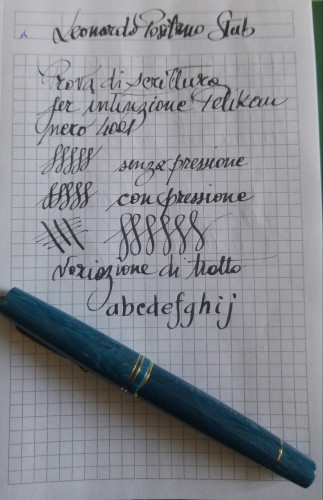 Leonardo Positano Stub
Prova di scrittura
per intinzione Pelikan
nero 4001
senza pressione
con pressione
Variazione di tratto
abcdefghij